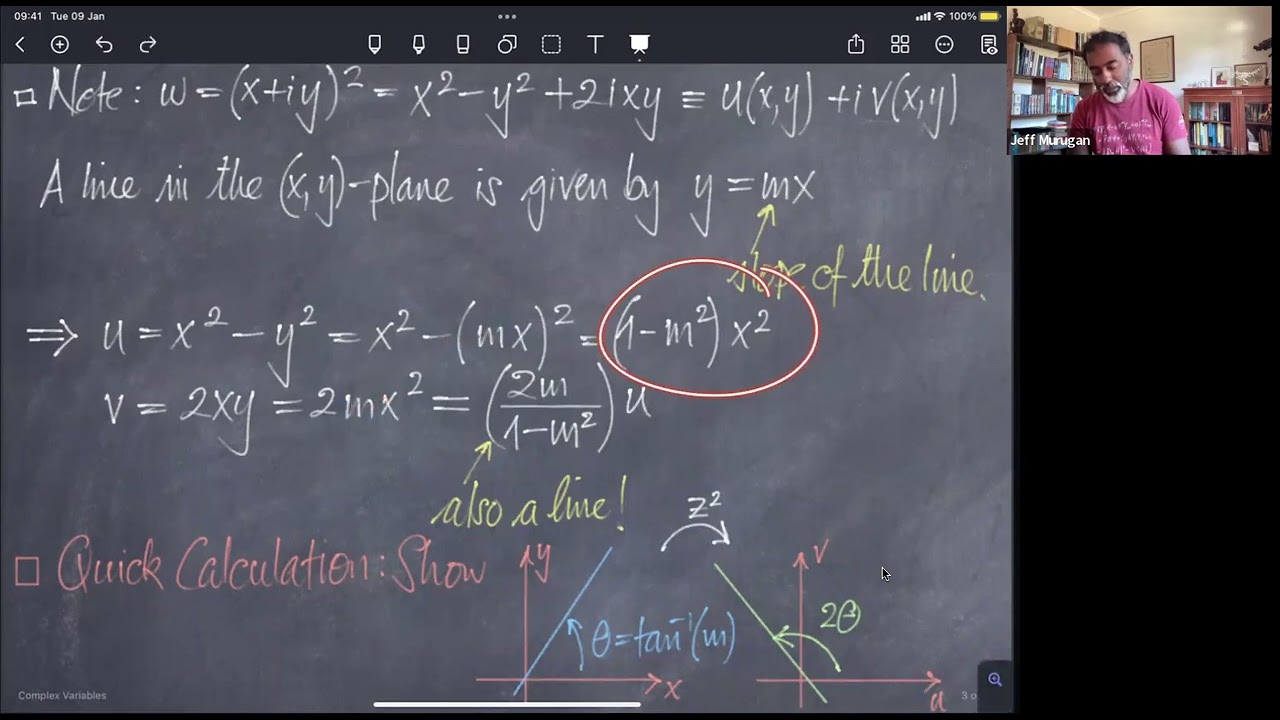 09:41 Tue 09 Jan
100%
Jeff Murugan
Note: w = (x+iy)² = x² − y² + 2ixy ≡ u(x,y) + iv(x,y)
A line in the (x,y)-plane is given by y = mx
slope of the line.
⇒ u = x² − y² = x² − (mx)² = (1−m²)x²
v = 2xy = 2mx² = (2m/(1−m²))u
also a line!
z²
Quick Calculation: Show
y
θ = tan⁻¹(m)
x
v
2θ
u
Complex Variables
3 o